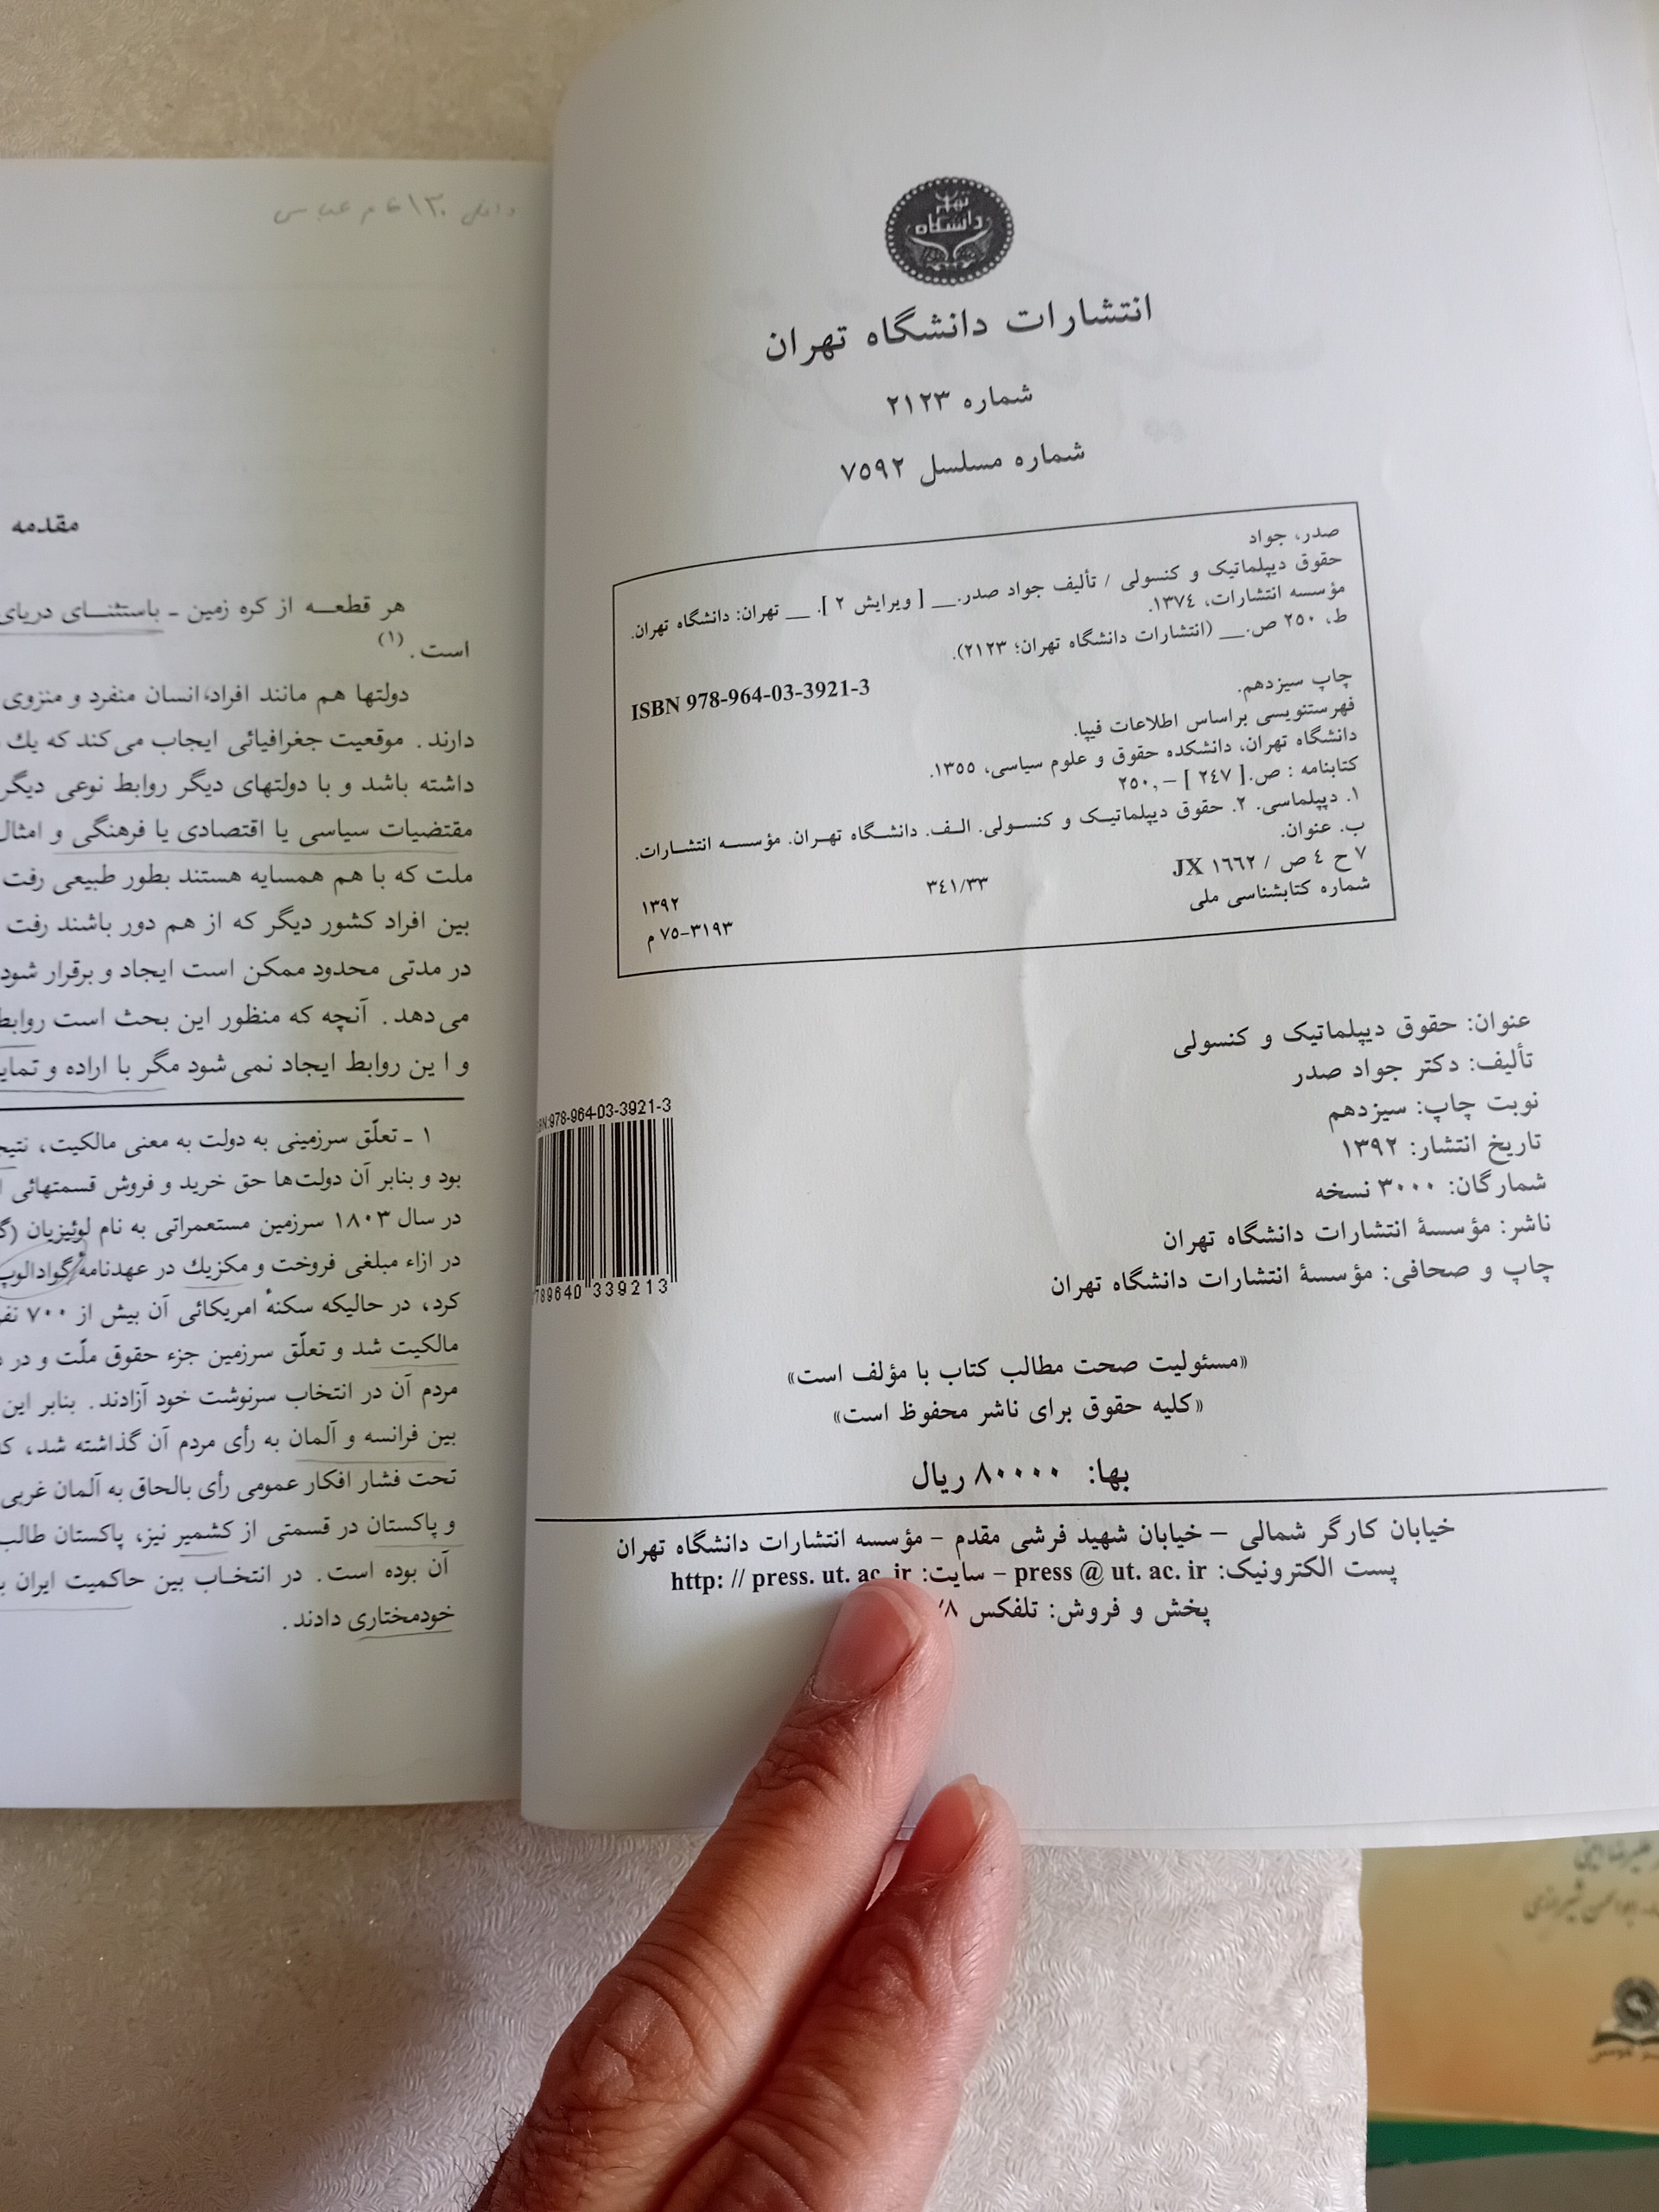 دانشگاه تهران
انتشارات دانشگاه تهران
شماره ۲۱۲۳
شماره مسلسل ۷۵۹۲
صدر، جواد
حقوق دیپلماتیک و کنسولی / تألیف جواد صدر.__ [ ویرایش ۲ ]. __ تهران: دانشگاه تهران.
مؤسسه انتشارات، ۱۳۷٤.
ط، ۲۵۰ ص.__ (انتشارات دانشگاه تهران؛ ۲۱۲۳).
ISBN 978-964-03-3921-3
چاپ سیزدهم.
فهرستنویسی براساس اطلاعات فیپا.
دانشگاه تهران، دانشکده حقوق و علوم سیاسی، ۱۳۵۵.
کتابنامه : ص.[ ۲٤۷ ] –,۲۵۰
۱. دیپلماسی. ۲. حقوق دیپلماتیـک و کنسـولی. الـف. دانشـگاه تهـران. مؤسسـه انتشـارات.
ب. عنوان.
۷ ح ٤ ص / ۱٦٦۲ JX ۳٤۱/۳۳ ۱۳۹۲
شماره کتابشناسی ملی ۳۱۹۳–۷۵ م
عنوان: حقوق دیپلماتیک و کنسولی
تألیف: دکتر جواد صدر
نوبت چاپ: سیزدهم
تاریخ انتشار: ۱۳۹۲
شمارگان: ۳۰۰۰ نسخه
ناشر: مؤسسهٔ انتشارات دانشگاه تهران
چاپ و صحافی: مؤسسهٔ انتشارات دانشگاه تهران
978-964-03-3921-3
789640 339213
«مسئولیت صحت مطالب کتاب با مؤلف است»
«کلیه حقوق برای ناشر محفوظ است»
بها: ۸۰۰۰۰ ریال
خیابان کارگر شمالی – خیابان شهید فرشی مقدم – مؤسسه انتشارات دانشگاه تهران
پست الکترونیک: press @ ut. ac. ir – سایت: http: // press. ut. ac. ir
پخش و فروش: تلفکس
مقدمه
هر قطعــه از کره زمین ـ باستثنــای دریای
است. (۱)
دولتها هم مانند افراد، انسان منفرد و منزوی
دارند. موقعیت جغرافیائی ایجاب می‌کند که یك
داشته باشد و با دولتهای دیگر روابط نوعی دیگر
مقتضیات سیاسی یا اقتصادی یا فرهنگی و امثال
ملت که با هم همسایه هستند بطور طبیعی رفت
بین افراد کشور دیگر که از هم دور باشند رفت
در مدتی محدود ممکن است ایجاد و برقرار شود
می‌دهد. آنچه که منظور این بحث است روابط
و این روابط ایجاد نمی‌شود مگر با اراده و تمایل
۱ ـ تعلّق سرزمینی به دولت به معنی مالکیت،
بود و بنابر آن دولت‌ها حق خرید و فروش قسمتهائی
در سال ۱۸۰۳ سرزمین مستعمراتی به نام لوئیزیان
در ازاء مبلغی فروخت و مکزیك در عهدنامهٔ گوادالوپ
کرد، در حالیکه سکنهٔ امریکائی آن بیش از ۷۰۰
مالکیت شد و تعلّق سرزمین جزء حقوق ملّت و در
مردم آن در انتخاب سرنوشت خود آزادند. بنابر این
بین فرانسه و آلمان به رأی مردم آن گذاشته شد،
تحت فشار افکار عمومی رأی بالحاق به آلمان غربی
و پاکستان در قسمتی از کشمیر نیز، پاکستان طالب
آن بوده است. در انتخـاب بین حاکمیت ایران
خودمختاری دادند.